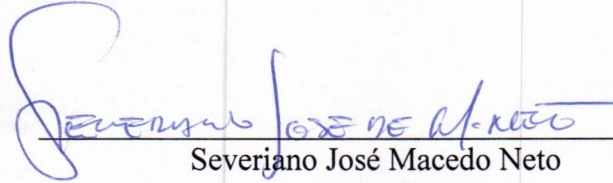 Severiano José de M. Neto
Severiano José Macedo Neto